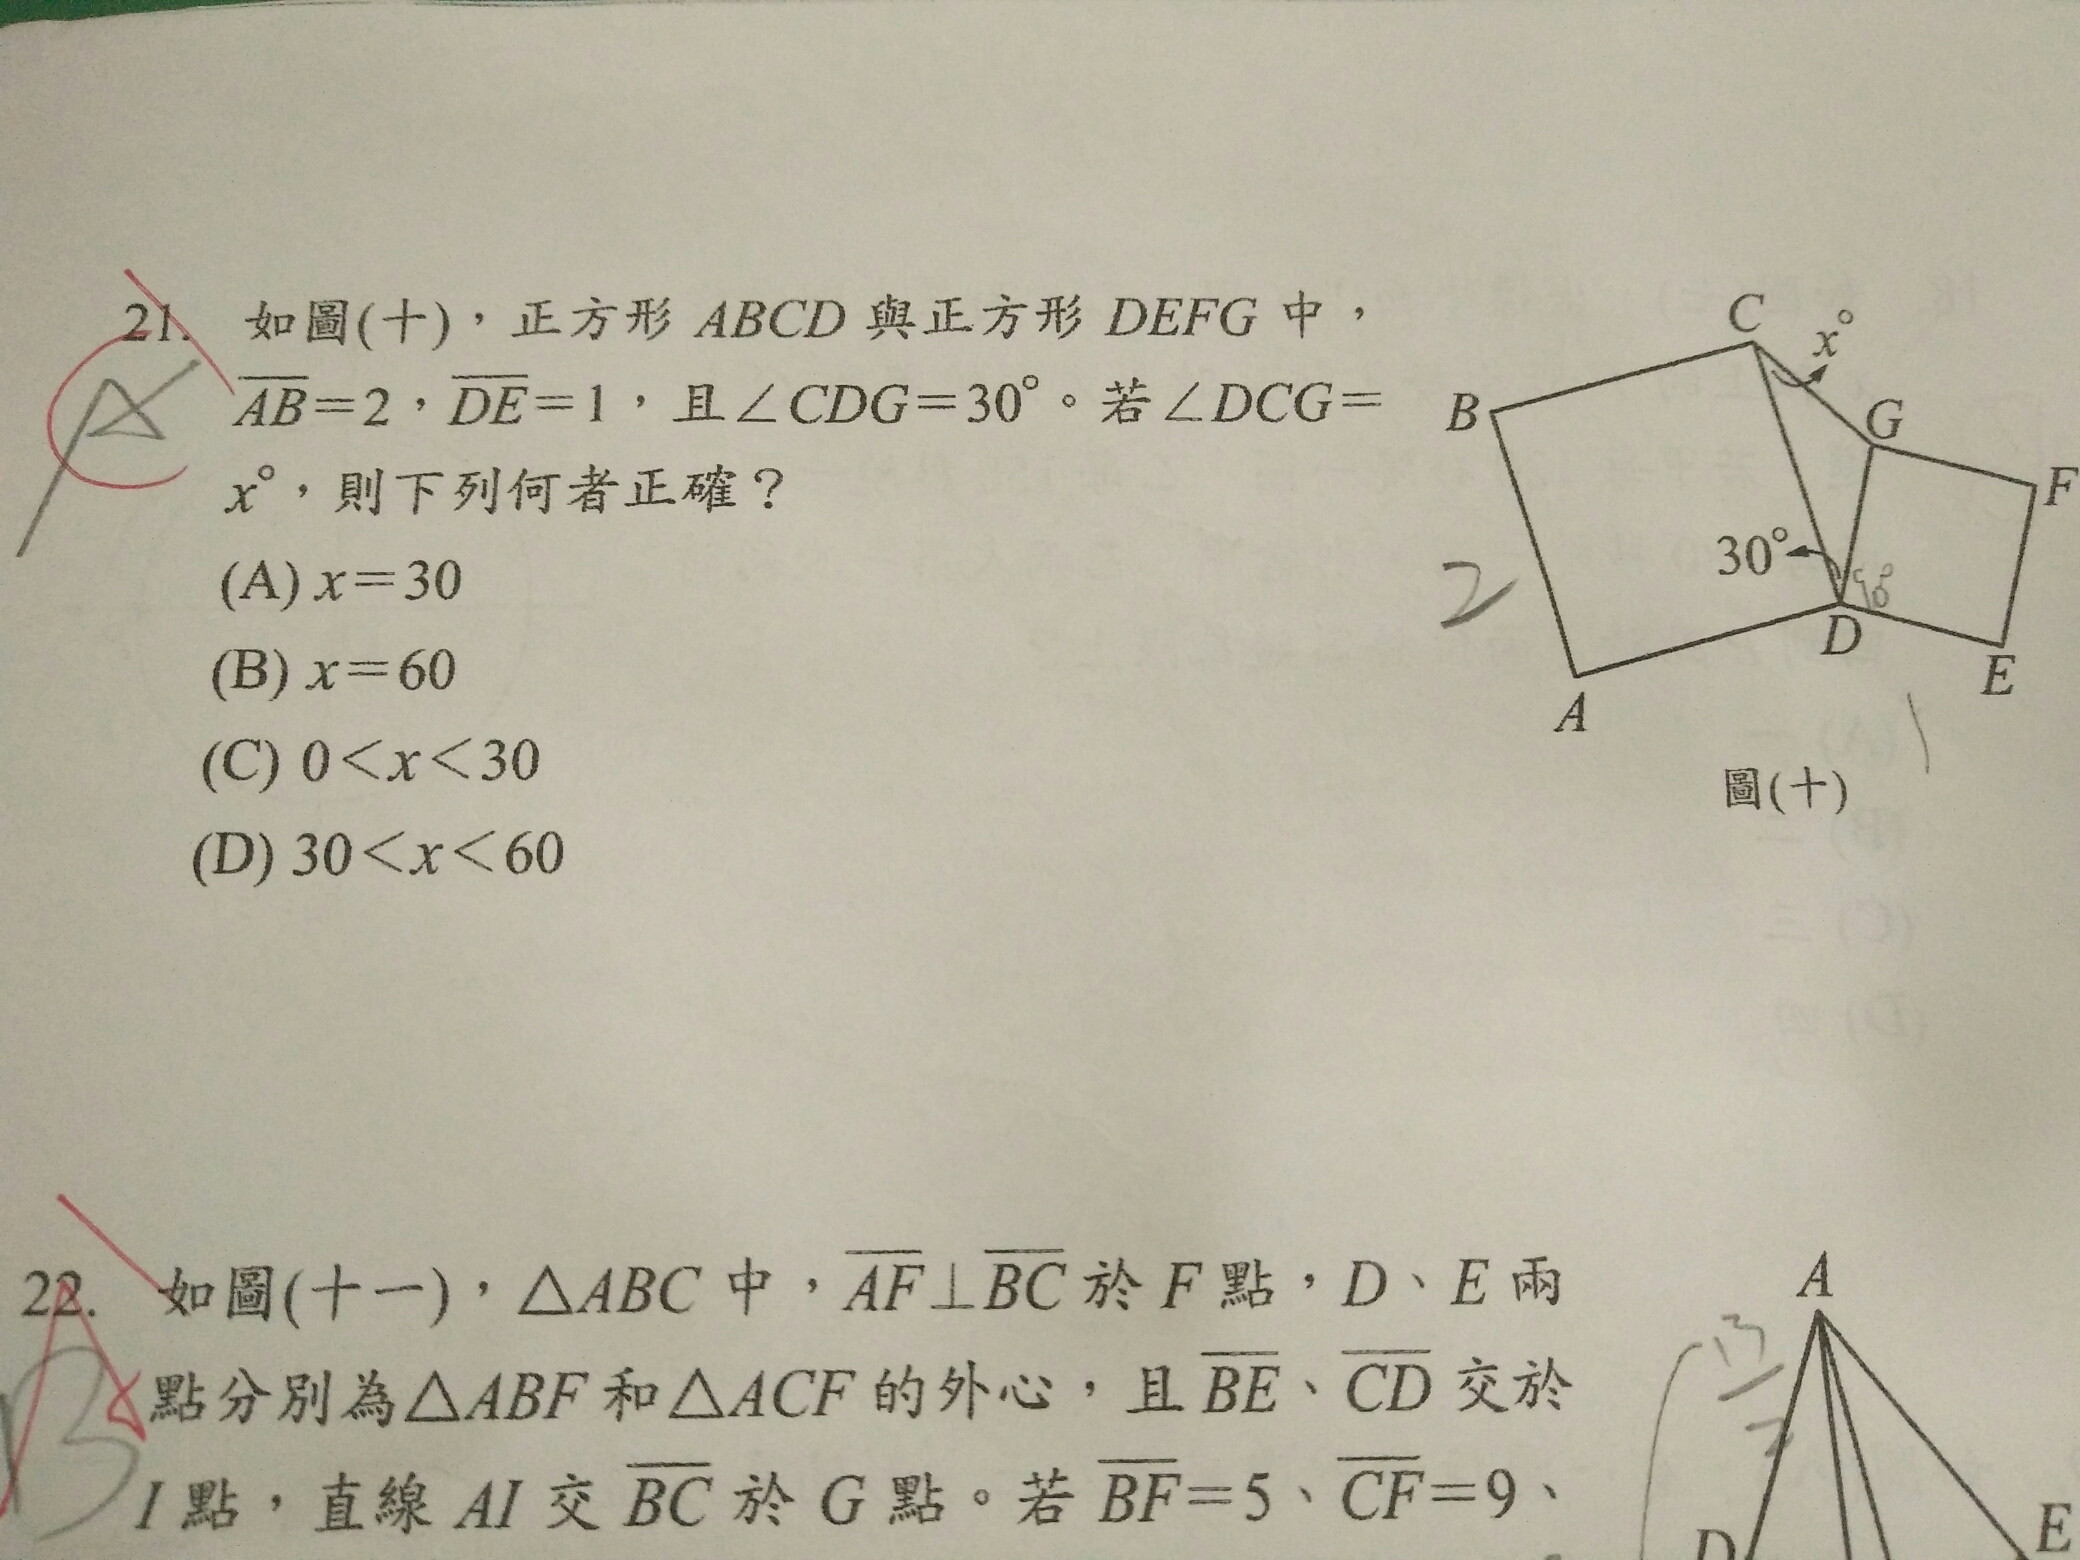 21. 如圖(十)，正方形 ABCD 與正方形 DEFG 中，
AB=2，DE=1，且∠CDG=30°。若∠DCG=
x°，則下列何者正確？
(A) x=30
(B) x=60
(C) 0<x<30
(D) 30<x<60
C
x°
B
G
F
30°
90°
2
D
E
A
1
圖(十)
22. 如圖(十一)，△ABC 中，AF⊥BC 於 F 點，D、E 兩
點分別為△ABF 和△ACF 的外心，且 BE、CD 交於
I 點，直線 AI 交 BC 於 G 點。若 BF=5、CF=9、
A
13
2
D
E